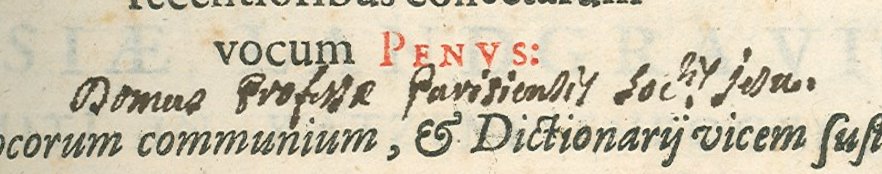 recentioribus collectarum
vocum PENVS:
Domus Professæ Parisiensis Soc.tis Jesu.
ocorum communium, & Dictionarij vicem ſuſt